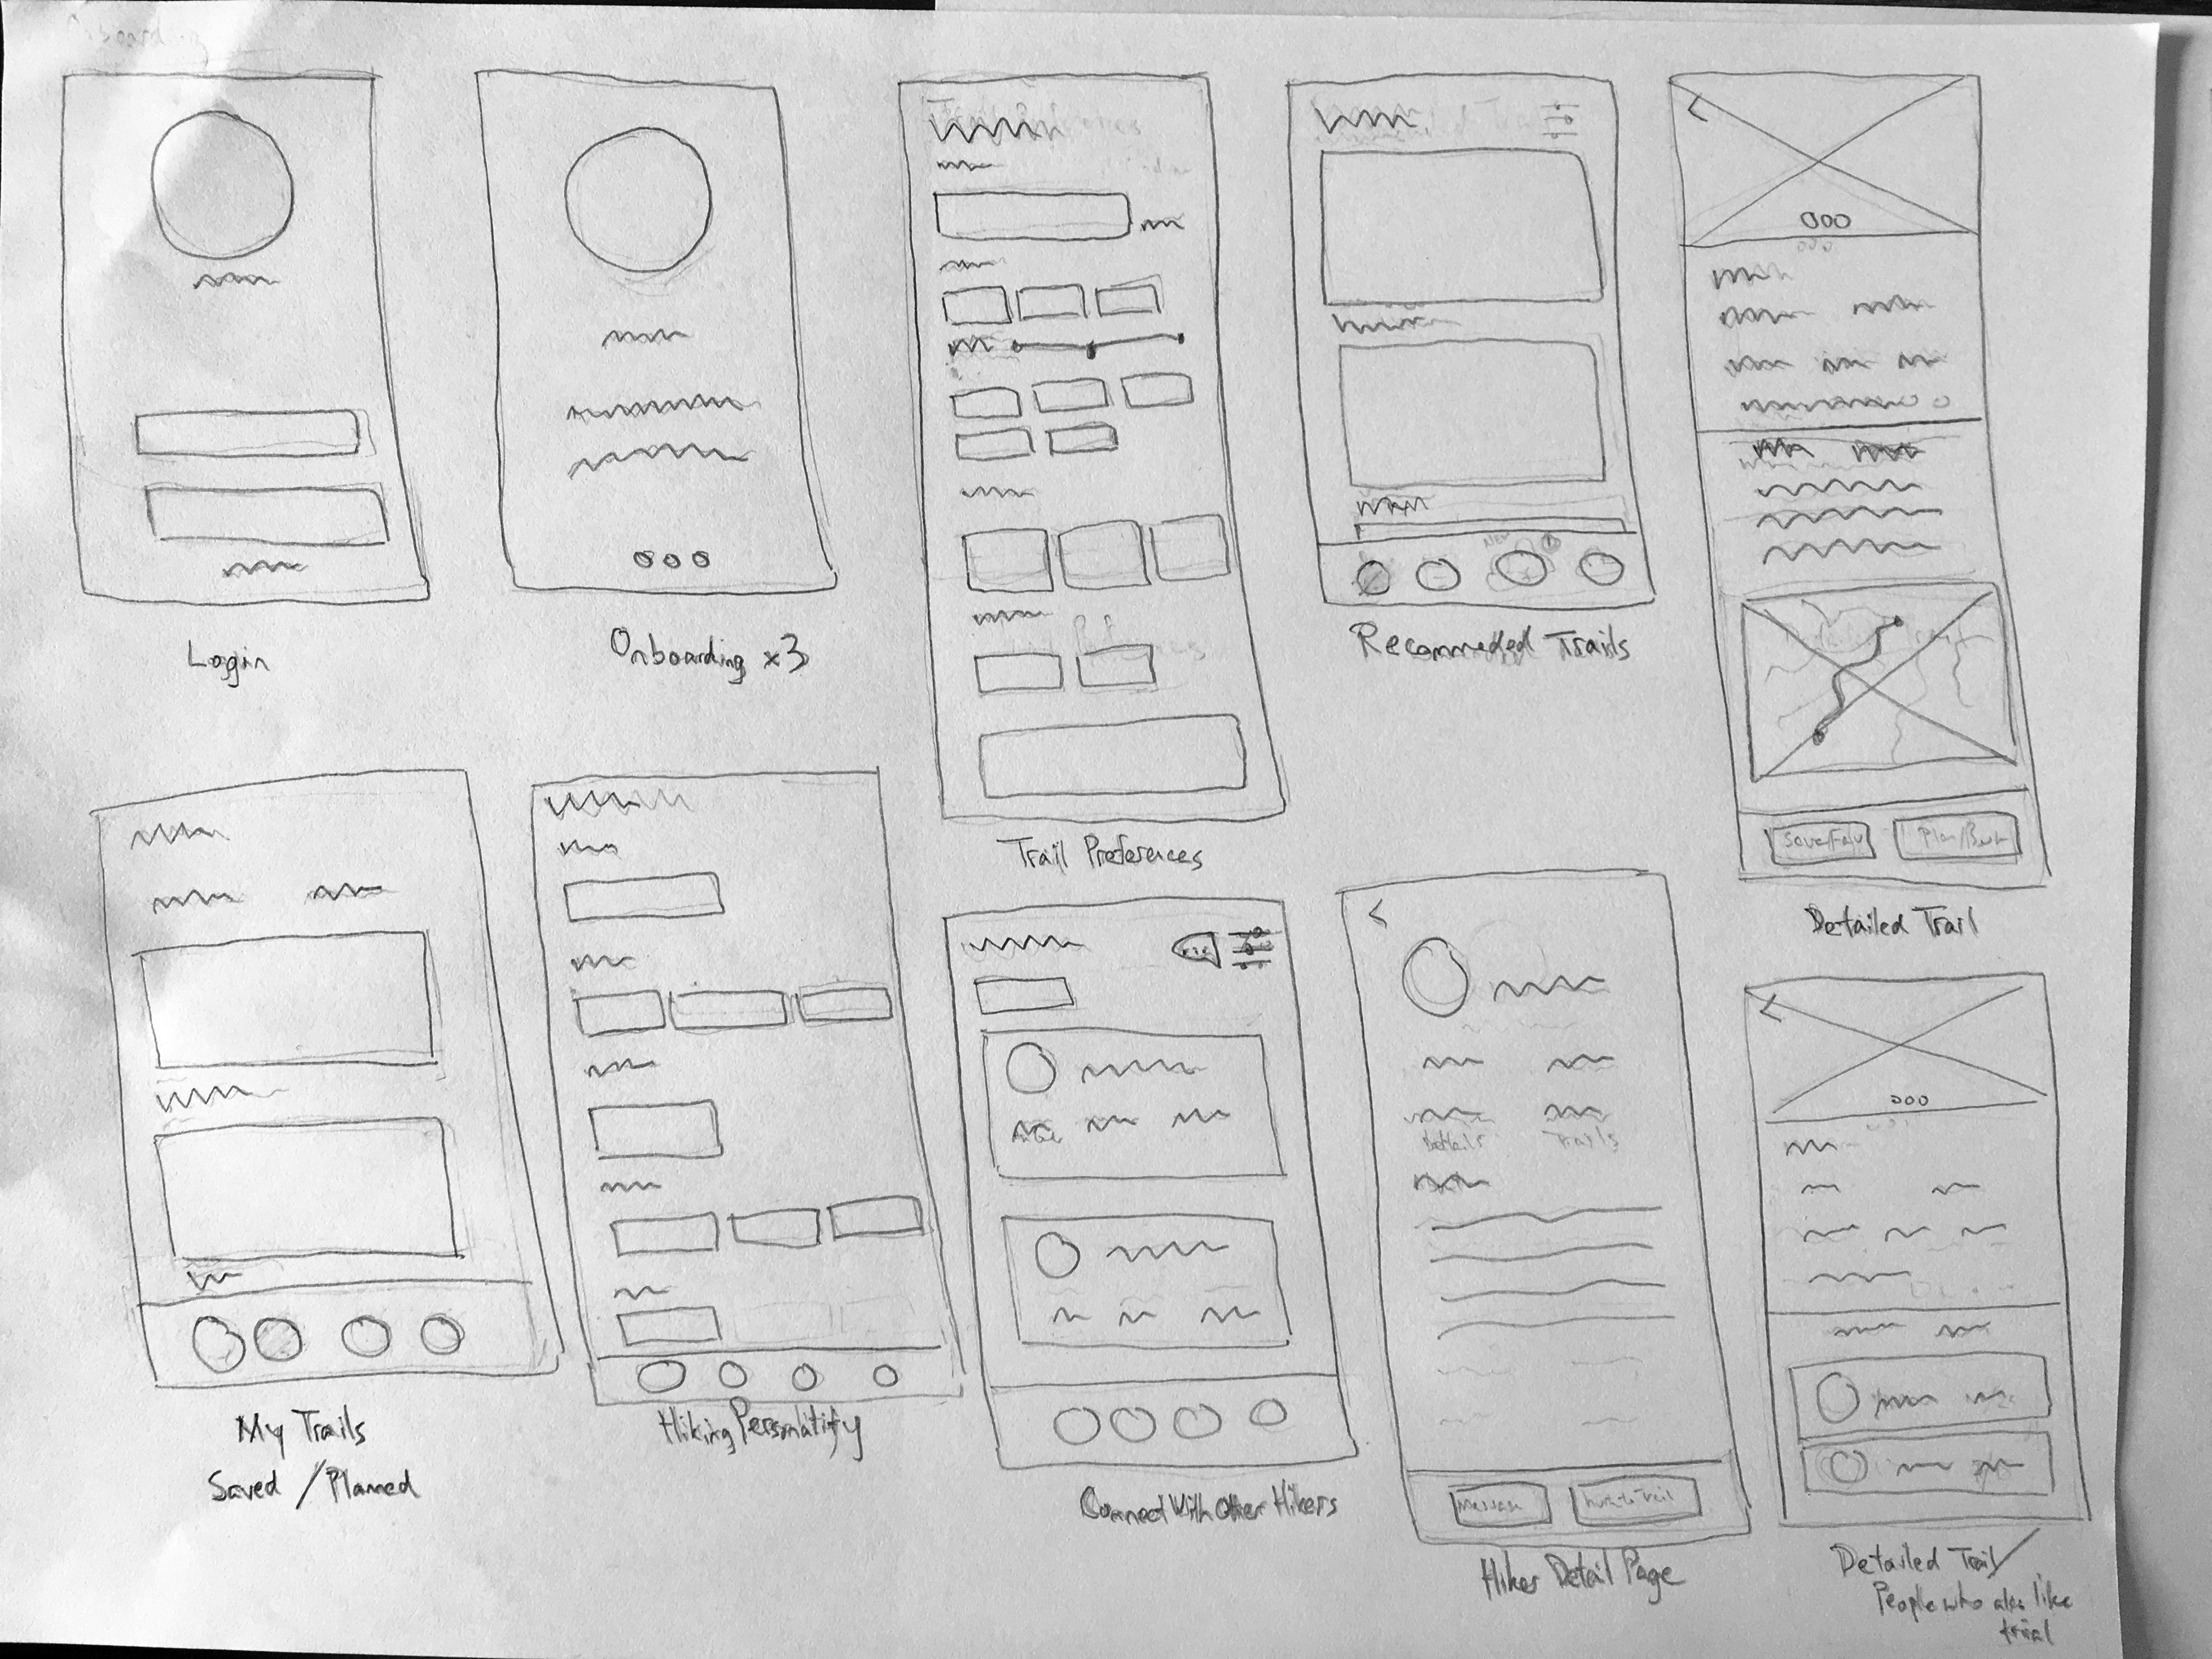 Login
Onboarding x3
Trail Preferences
Recommeded Trails
Save/Fav
Detailed Trail
My Trails
Saved / Planned
Hiking Personality
Connect With Other Hikers
Details
Trails
Message
Hiker Detail Page
Detailed Trail/
People who also like
trial